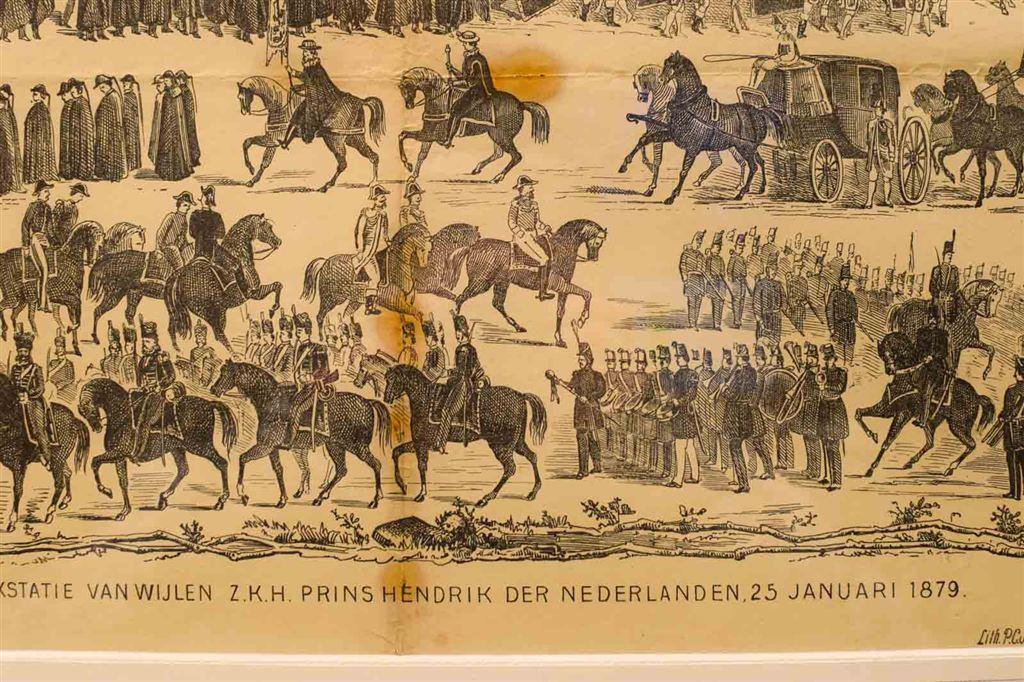 KSTATIE VAN WIJLEN Z.K.H. PRINS HENDRIK DER NEDERLANDEN, 25 JANUARI 1879.
Lith. P.C.